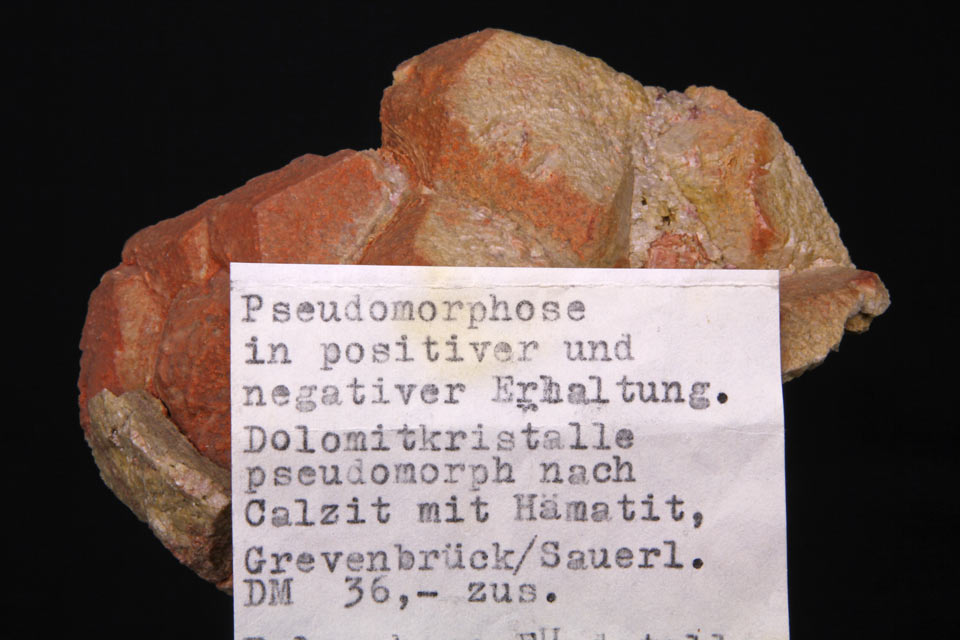 Pseudomorphose
in positiver und
negativer Erhaltung.
Dolomitkristalle
pseudomorph nach
Calzit mit Hämatit,
Grevenbrück/Sauerl.
DM 36,- zus.